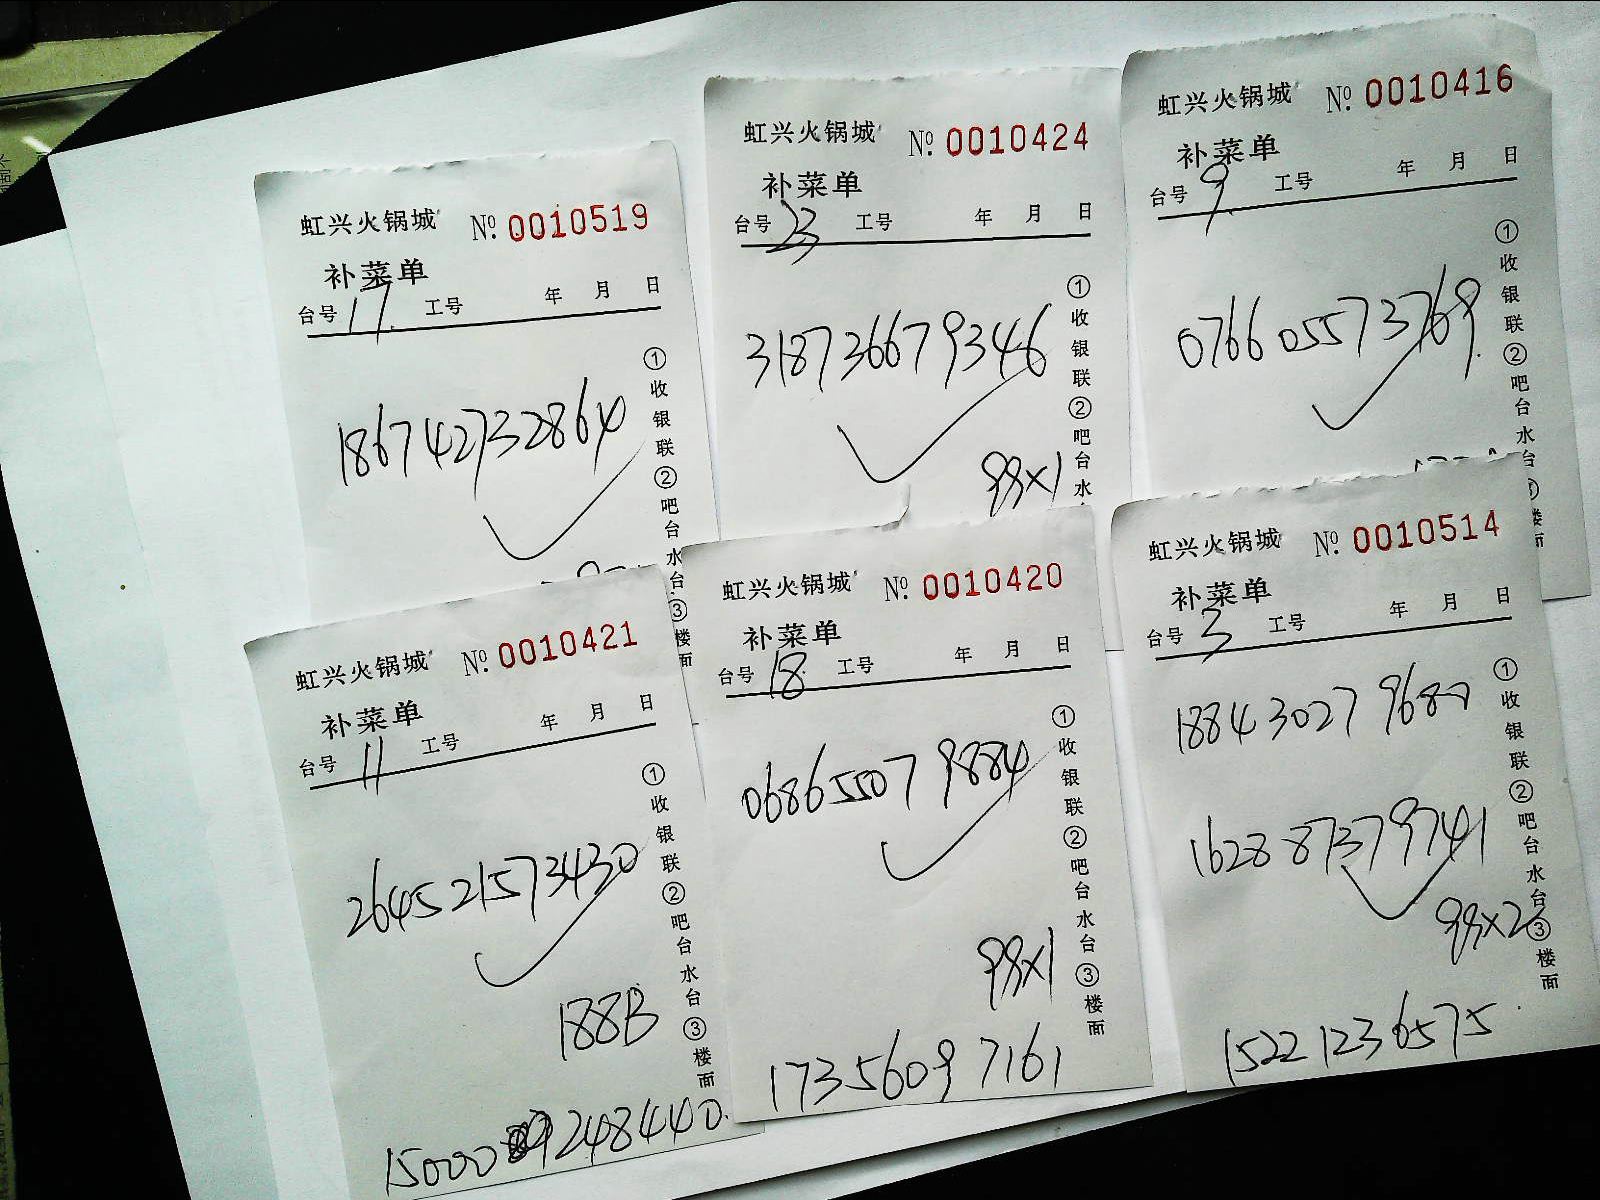 虹兴火锅城 № 0010519
补菜单
台号 17. 工号 年 月 日
186742732864
①收银联②吧台水台③楼面
虹兴火锅城 № 0010424
补菜单
台号 23 工号 年 月 日
318736679346
99×1
①收银联②吧台水
虹兴火锅城 № 0010416
补菜单
台号 9. 工号 年 月 日
076605573769.
①收银联②吧台水台③楼面
虹兴火锅城 № 0010421
补菜单
台号 11 工号 年 月 日
264521573430
188B
①收银联②吧台水台③楼面
虹兴火锅城 № 0010420
补菜单
台号 18. 工号 年 月 日
068655079884
99×1
①收银联②吧台水台③楼面
17356097161
虹兴火锅城 № 0010514
补菜单
台号 3 工号 年 月 日
162887379741
99×2
①收银联②吧台水台③楼面
15221236575